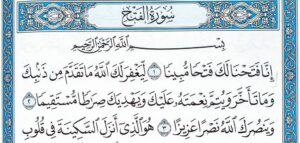 سُورَةُ الفَتْحِ
بِسْمِ اللَّهِ الرَّحْمَٰنِ الرَّحِيمِ
إِنَّا فَتَحْنَا لَكَ فَتْحًا مُّبِينًا ١ لِّيَغْفِرَ لَكَ اللَّهُ مَا تَقَدَّمَ مِن ذَنبِكَ
وَمَا تَأَخَّرَ وَيُتِمَّ نِعْمَتَهُ عَلَيْكَ وَيَهْدِيَكَ صِرَاطًا مُّسْتَقِيمًا ٢
وَيَنصُرَكَ اللَّهُ نَصْرًا عَزِيزًا ٣ هُوَ الَّذِي أَنزَلَ السَّكِينَةَ فِي قُلُوبِ